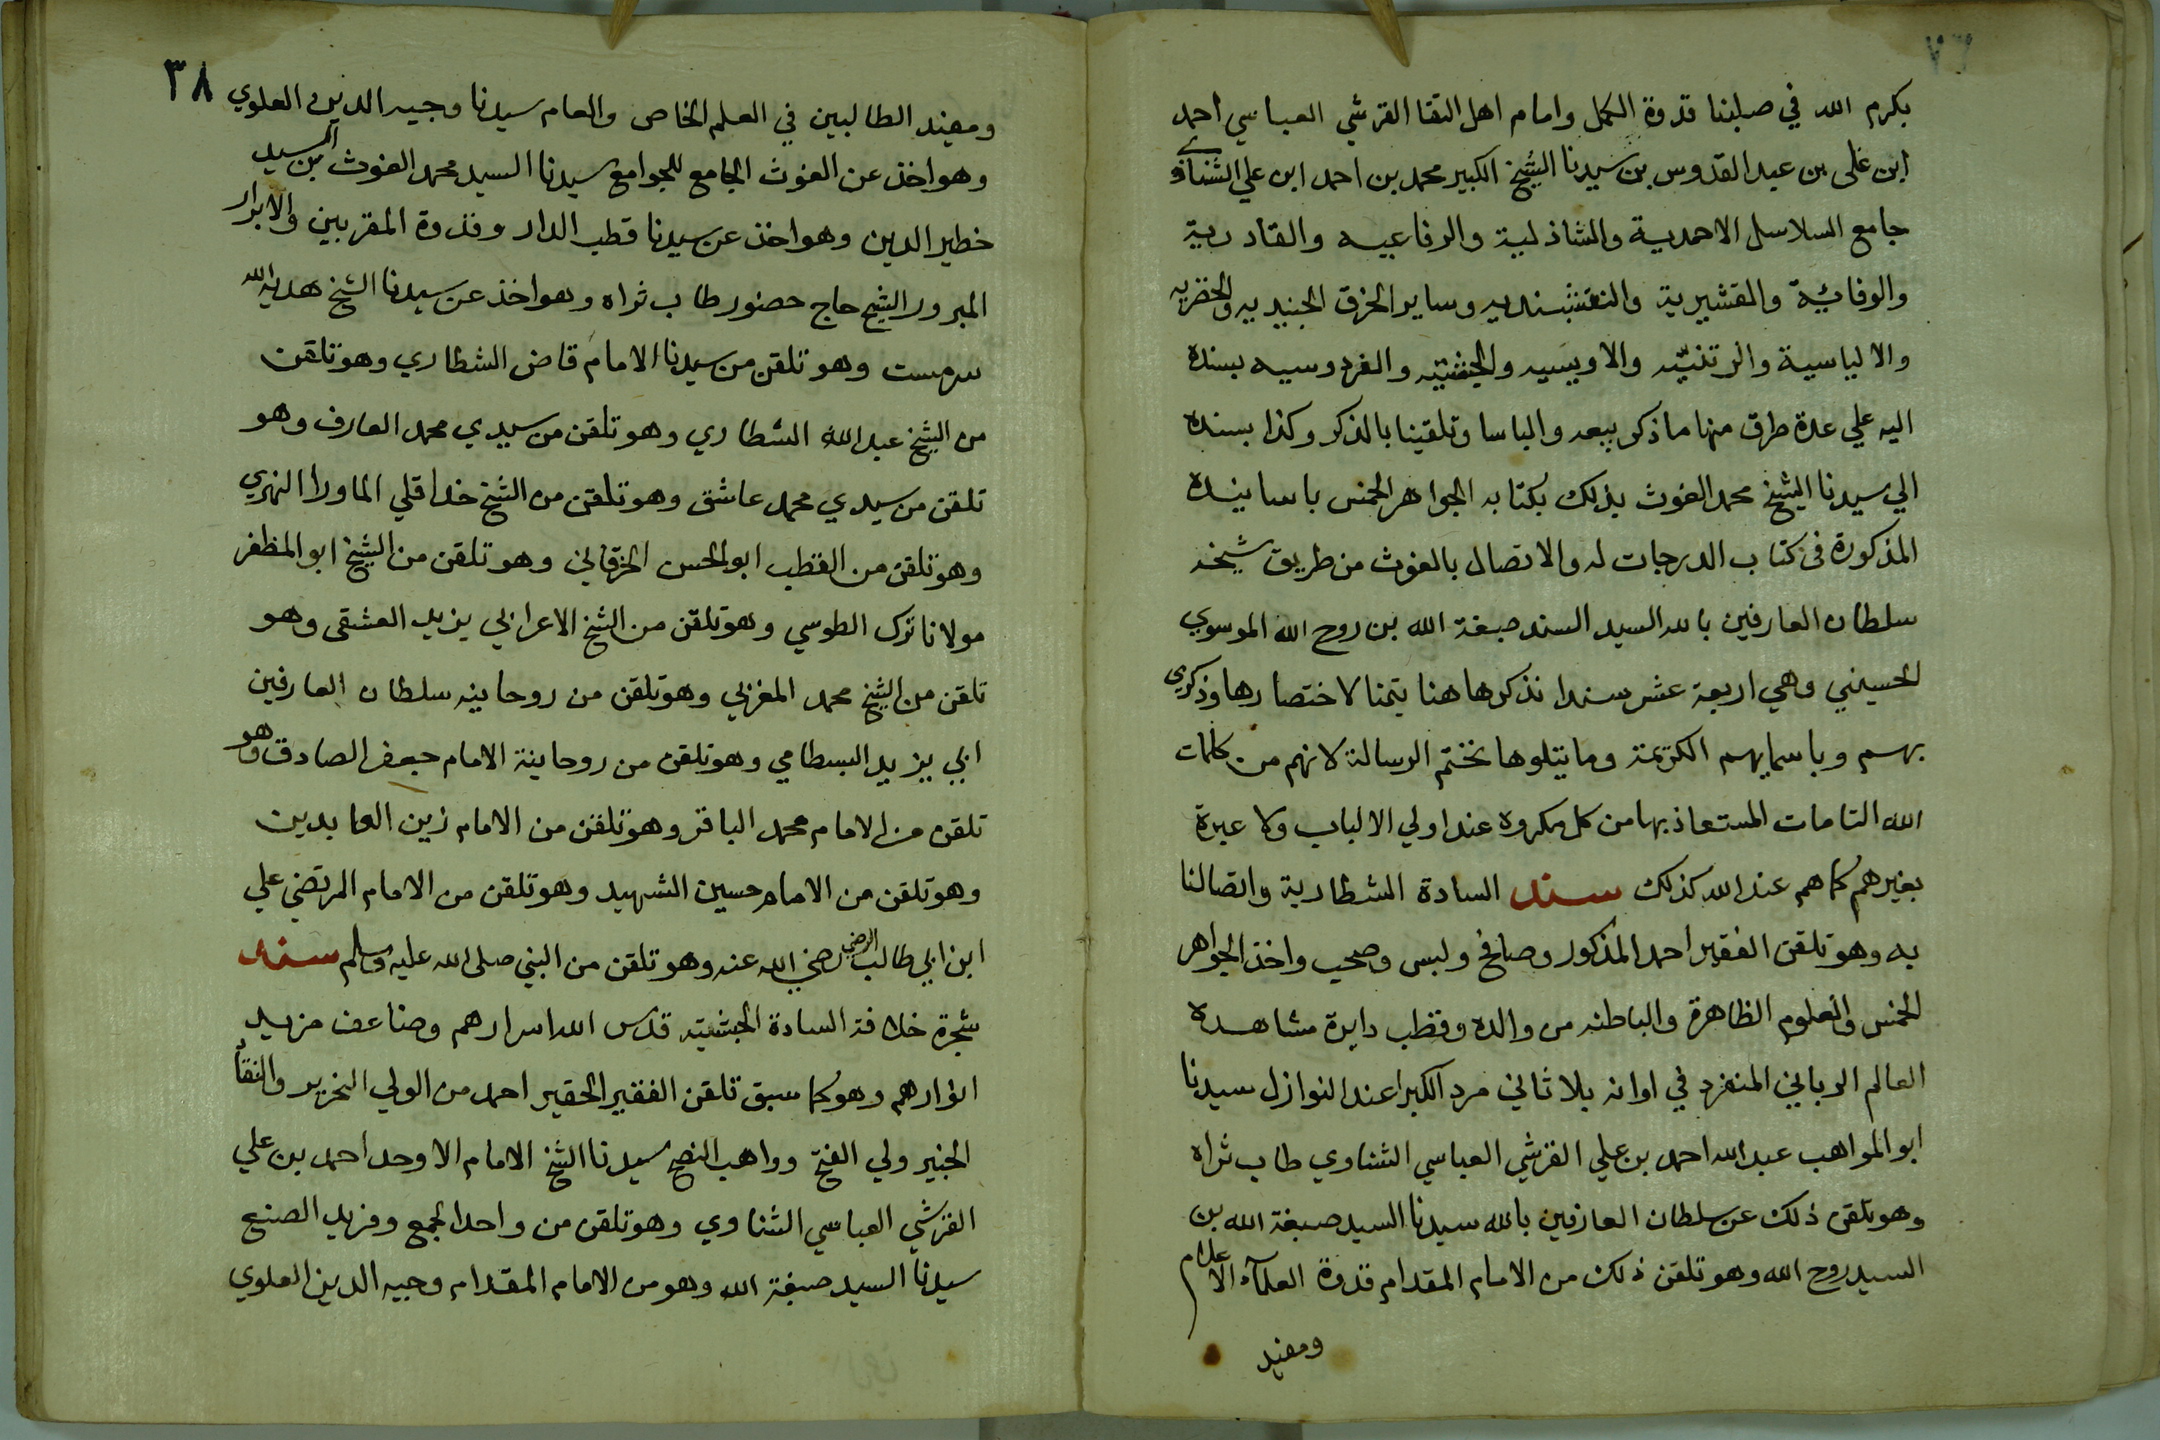 بكرم الله في صلبنا قدوة الكمل وامام اهل التقا القرشي العباسي احمد
ابن علي بن عبد القدوس بن سيدنا الشيخ الكبير محمد بن احمد ابن علي الشناوي
جامع السلاسل الاحمدية والشاذلية والرفاعيه والقادرية
والوفائية والقشيرية والنقشبنديه وساير الخرق الجنيديه والخضريه
والالياسية والرتنيّه والاويسيه والچشتيه والفردوسيه بسنده
اليه علي عدة طرق منها ماذكر ببعه والباسا وتلقينا بالذكر وكذا بسنده
الي سيدنا الشيخ محمد الغوث بذلك بكتابه الجواهر الخمس باسانيده
المذكورة فى كتاب الدرجات له والاتصال بالغوث من طريق شيخه
سلطان العارفين بالله السيد السند صبغة الله بن روح الله الموسوي
الحسيني وهي اربعة عشر سندا نذكرها هنا يتمنا لاختصارها وذكري
بهم وباسمايهم الكريمة وما يتلوها نختم الرسالة لانهم من كلمات
الله التامات المستعاذ بها من كل مكروه عند اولي الالباب ولا عبرة
بغيرهم كما هم عند الله كذلك سند السادة الشطارية واتصالنا
به وهو تلقن الفقير احمد المذكور وصافح ولبس وصحب واخذ الجواهر
الخمس والعلوم الظاهرة والباطنه من والده وقطب دايرة مشاهده
العالم الرباني المنفرد في اوانه بلا ثاني مرد الكبرا عند النوازل سيدنا
ابو المواهب عبد الله احمد بن علي القرشي العباسي الشناوي طاب ثراه
وهو تلقى ذلك عن سلطان العارفين بالله سيدنا السيد صبغة الله بن
السيد روح الله وهو تلقن ذلك من الامام المقدام قدوة العلمآء الاعلام
ومفيد
٣٨
ومفيد الطالبين في العلم الخاص والعام سيدنا وجيه الدين العلوي
وهو اخذ عن الغوث الجامع للجوامع سيدنا السيد محمد الغوث بن السيد
خطير الدين وهو اخذ عن سيدنا قطب الدار وقدوة المقربين والابرار
المبرور الشيخ حاج حضور طاب ثراه وهو اخذ عن سيدنا الشيخ هدية الله
سرمست وهو تلقن من سيدنا الامام قاض الشطاري وهو تلقن
من الشيخ عبد الله الشطاري وهو تلقن من سيدي محمد العارف وهو
تلقن من سيدي محمد عاشق وهو تلقن من الشيخ خداقلي الماوراالنهري
وهو تلقن من القطب ابو الحسن الخرقاني وهو تلقن من الشيخ ابو المظفر
مولانا ترك الطوسي وهو تلقن من الشيخ الاعرابي يزيد العشقى وهو
تلقن من الشيخ محمد المغربي وهو تلقن من روحانيه سلطان العارفين
ابي يزيد البسطامي وهو تلقن من روحانية الامام جعفر الصادق وهو
تلقن من الامام محمد الباقر وهو تلقن من الامام زين العابدين
وهو تلقن من الامام حسين الشهيد وهو تلقن من الامام المرتضي علي
ابن ابي طالب الرضي رضي الله عنه وهو تلقن من النبي صلى الله عليه وسلم سند
شجرة خلافة السادة الچشتيه قدس الله اسرارهم وضاعف مزيد
انوارهم وهو كما سبق تلقن الفقير الحقير احمد من الولي النحرير والنقا
الخبير ولي الفتح وواهب النصح سيدنا الشيخ الامام الاوحد احمد بن علي
القرشي العباسي الشناوي وهو تلقن من واحد الجمع وفريد الصنع
سيدنا السيد صبغة الله وهو من الامام المقدام وجيه الدين العلوي